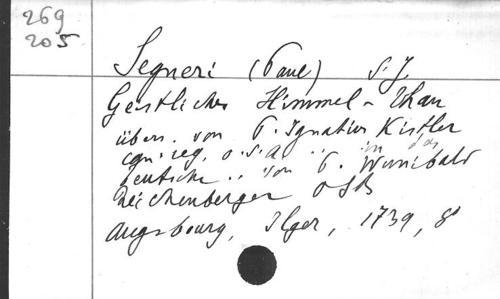 269
205
Segneri (Paul) S.J.
Geistliches Himmel-Thau
übers. von P. Ignatius Kistler
can. reg. o.S.A. .. in das
Deutsche .. von P. Wunibald
Reichenberger OSB
Augsbourg, Ilger, 1739, 8°